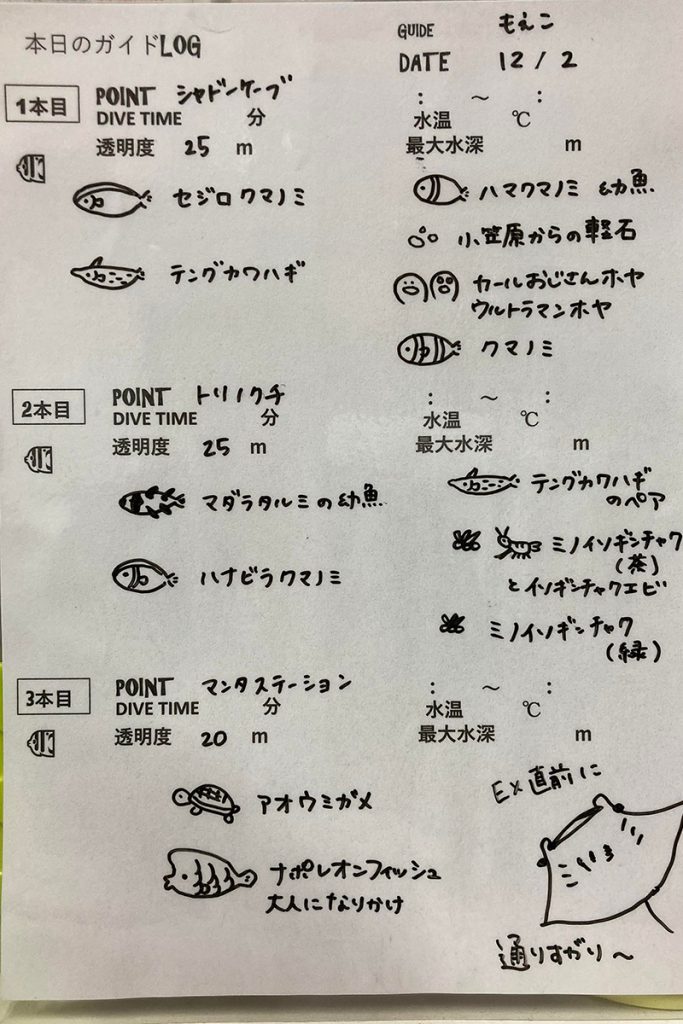 本日のガイドLOG
GUIDE もえこ
DATE 12 / 2
1本目
POINT シャドーケーブ
DIVE TIME 分
: ～ :
水温 ℃
透明度 25 m
最大水深 m
セジロクマノミ
ハマクマノミ 幼魚
小笠原からの軽石
テングカワハギ
カールおじさんホヤ
ウルトラマンホヤ
クマノミ
2本目
POINT トリノクチ
DIVE TIME 分
: ～ :
水温 ℃
透明度 25 m
最大水深 m
マダラタルミの幼魚
テングカワハギ
のペア
ハナビラクマノミ
ミノイソギンチャク
(茶)
とイソギンチャクエビ
ミノイソギンチャク
(緑)
3本目
POINT マンタステーション
DIVE TIME 分
: ～ :
水温 ℃
透明度 20 m
最大水深 m
アオウミガメ
ナポレオンフィッシュ
大人になりかけ
EX直前に
通りすがり～